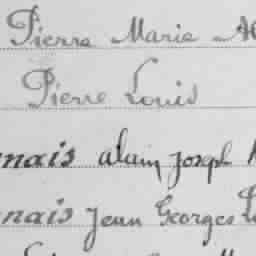 Pierre Marie
Pierre Louis
nais alain joseph
nais Jean Georges